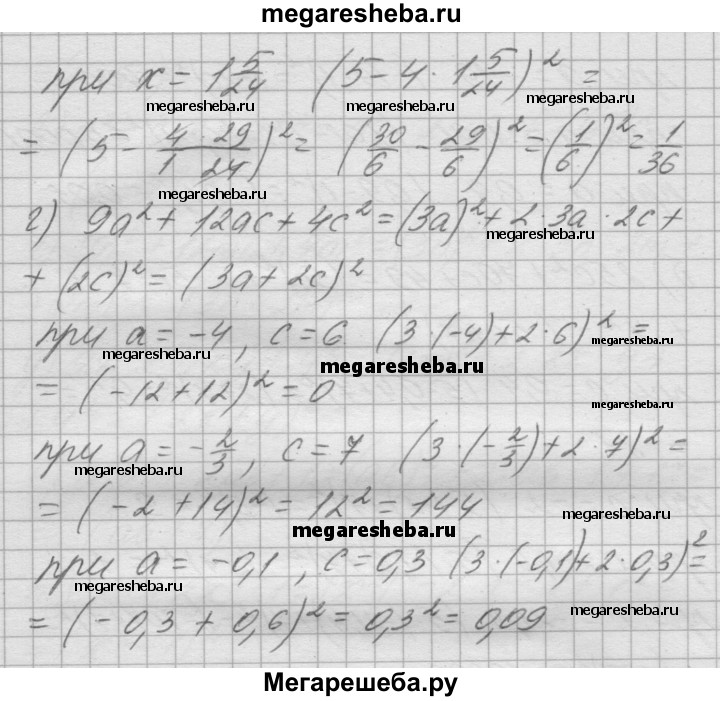 megaresheba.ru
при x = 1 5/24 (5 - 4 · 1 5/24)² =
megaresheba.ru megaresheba.ru megaresheba.ru
= (5 - 4 · 29 / 1 24)² = (30/6 - 29/6)² = (1/6)² = 1/36
megaresheba.ru
г) 9a² + 12ac + 4c² = (3a)² + 2 · 3a · 2c +
megaresheba.ru
+ (2c)² = (3a + 2c)²
при a = -4, c = 6 (3 · (-4) + 2 · 6)² =
megaresheba.ru megaresheba.ru megaresheba.ru
= (-12 + 12)² = 0
megaresheba.ru
при a = -2/3, c = 7 (3 · (-2/3) + 2 · 7)² =
megaresheba.ru
= (-2 + 14)² = 12² = 144
megaresheba.ru megaresheba.ru
при a = -0,1, c = 0,3 (3 · (-0,1) + 2 · 0,3)² =
megaresheba.ru
= (-0,3 + 0,6)² = 0,3² = 0,09
megaresheba.ru
Мегарешеба.ру